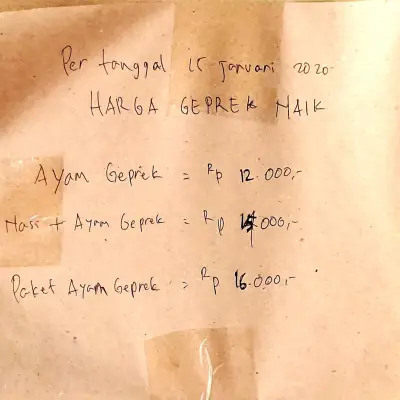 Per tanggal 15 januari 2020
HARGA GEPREK NAIK
Ayam Geprek = Rp 12.000,-
Nasi + Ayam Geprek = Rp 14.000,-
Paket Ayam Geprek = Rp 16.000,-